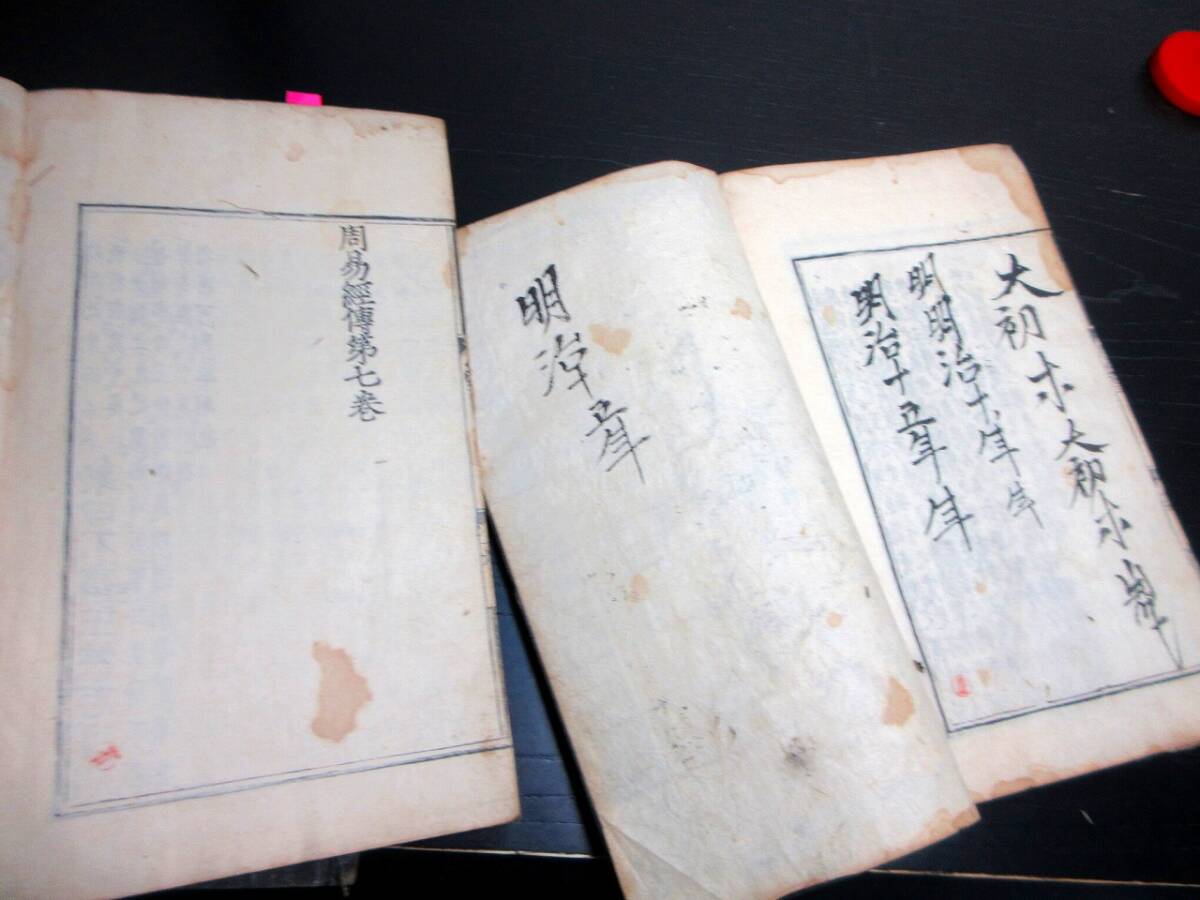 大初木大初木
明明治十年年
明治十五年年
明治
周易經傳第七卷